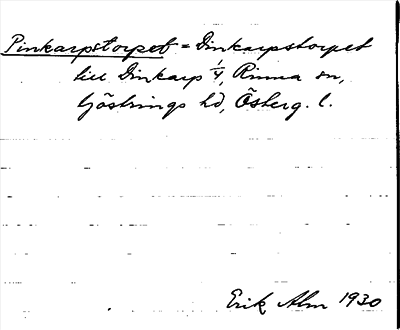 Pinkarpstorpet = Dinkarpstorpet
till Dinkarp 1/4, Rinna sn,
Göstrings hd, Österg. l.
Erik Alm 1930